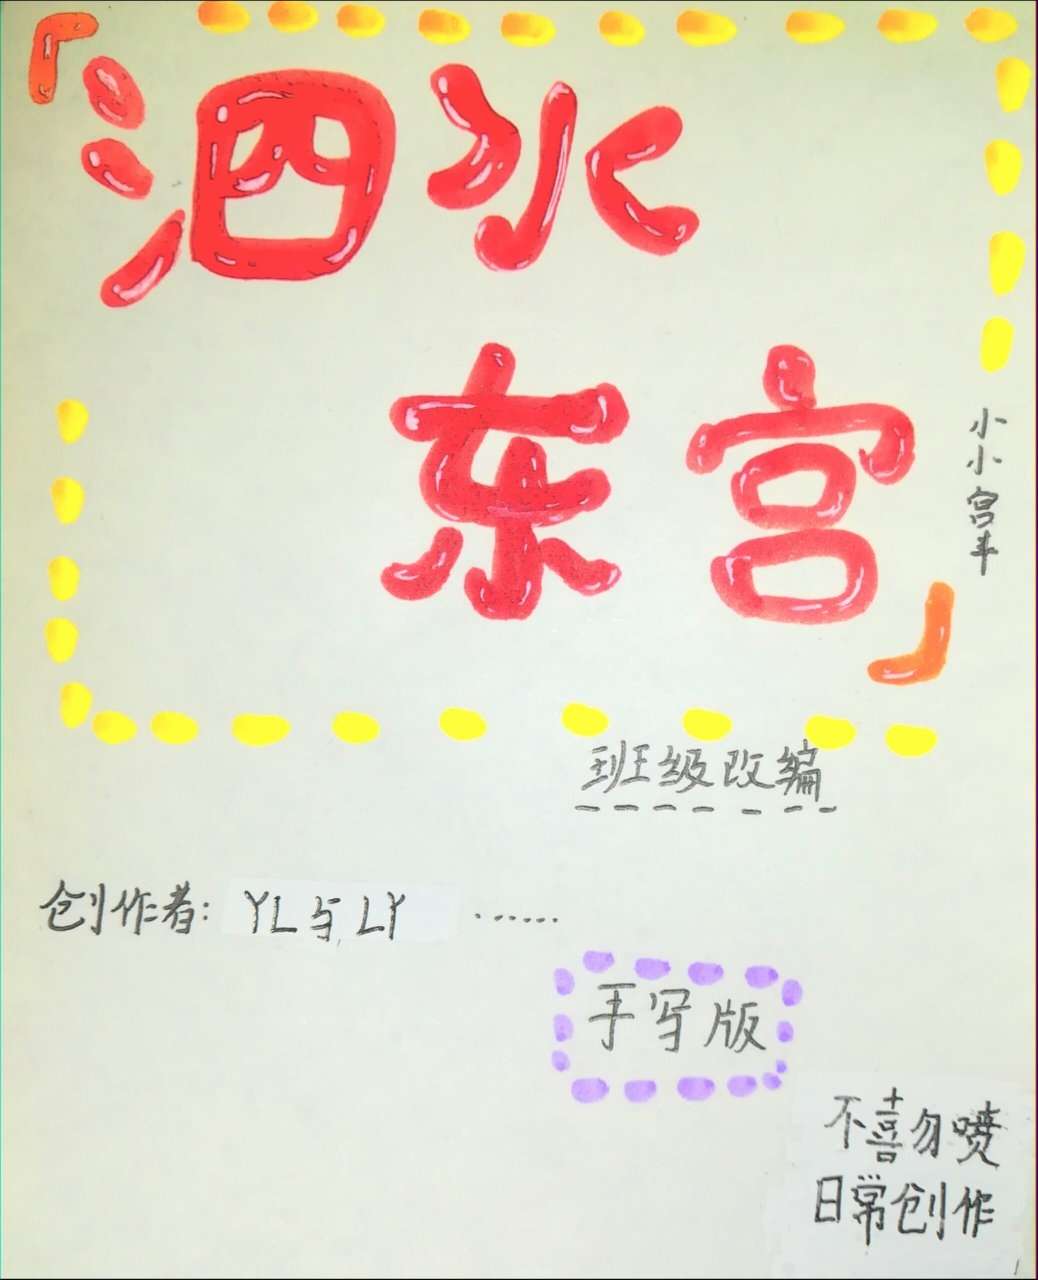 「泗水
东宫」
小小宫斗
班级改编
创作者：YL与LY ……
手写版
不喜勿喷
日常创作